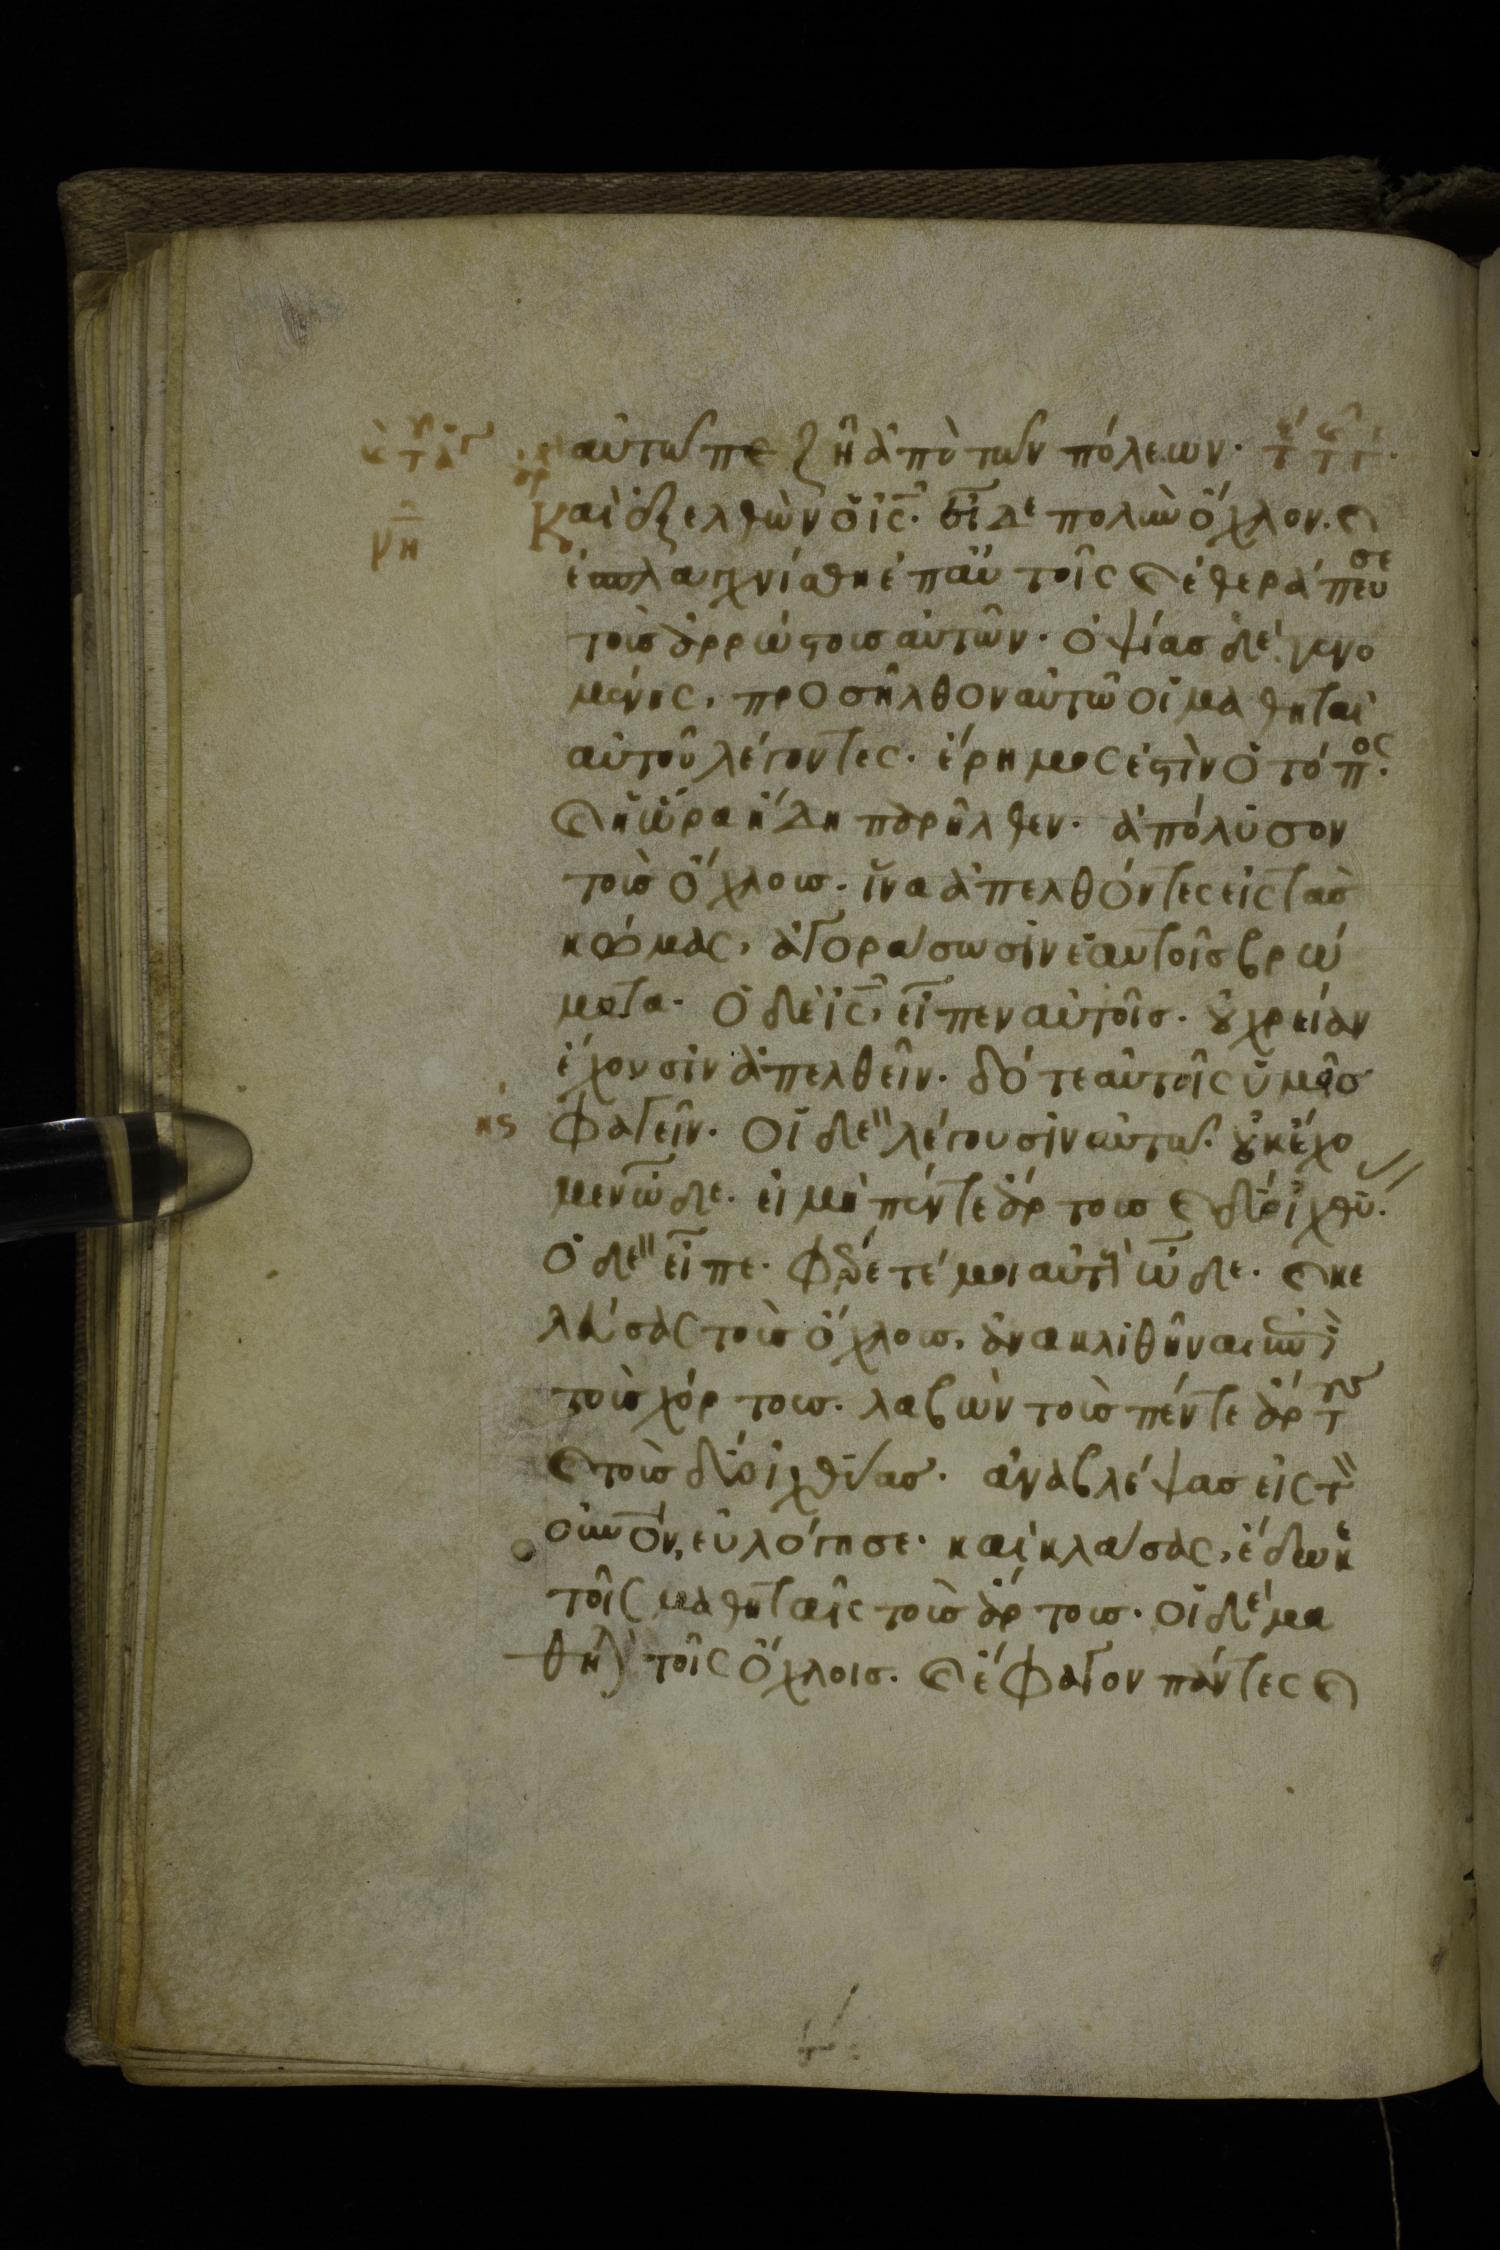 αὐτῶ πεζῆ ἀπὸ τῶν πόλεων.
νη Καὶ ἐξελθὼν ὁ ἰς. εἶδε πολὺν ὄχλον. καὶ
ἐσπλαγχνίσθη ἐπ αὐτοῖς καὶ ἐθεράπευσε
τοὺς ἀρρώστους αὐτῶν. ὀψίας δὲ γενο
μένης, προσῆλθον αὐτῶ οἱ μαθηταὶ
αὐτοῦ λέγοντες. ἔρημος ἐστὶν ὁ τόπος.
καὶ ἡ ὥρα ἤδη παρῆλθεν. ἀπόλυσον
τοὺς ὄχλους. ἵνα ἀπελθόντες εἰς τὰς
κώμας, ἀγοράσωσιν ἑαυτοῖς βρώ
ματα. ὁ δὲ ἰς, εἶπεν αὐτοῖς. οὐ χρείαν
ἔχουσιν ἀπελθεῖν. δότε αὐτοῖς ὑμεῖς
φαγεῖν. οἱ δὲ λέγουσιν αὐτῶ. οὐκ ἔχο
μεν ὧδε. εἰ μὴ πέντε ἄρτους καὶ δύο ἰχθύ.
ὁ δὲ εἶπε. φέρετέ μοι αὐτοὺς ὧδε. καὶ κε
λεύσας τοὺς ὄχλους, ἀνακλιθῆναι ἐπὶ
τοὺς χόρτους. λαβὼν τοὺς πέντε ἄρτους
καὶ τοὺς δύο ἰχθύας. ἀναβλέψας εἰς τὸν
οὐνον, εὐλόγησε. καὶ κλάσας, ἔδωκε
τοῖς μαθηταῖς τοὺς ἄρτους. οἱ δὲ μα
θητ τοῖς ὄχλοις. καὶ ἔφαγον πάντες καὶ